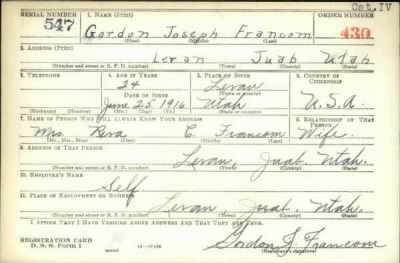 Cat. IV
SERIAL NUMBER 1. NAME (Print) ORDER NUMBER
547 Gordon Joseph Francom 430
(First) (Middle) (Last)
2. ADDRESS (Print)
Levan Juab Utah
(Number and street or R. F. D. number) (Town) (County) (State)
3. TELEPHONE 4. AGE IN YEARS 5. PLACE OF BIRTH 6. COUNTRY OF CITIZENSHIP
24 Levan
DATE OF BIRTH (Town or county)
June 25 1916 Utah U.S.A.
(Exchange) (Number) (Mo.) (Day) (Yr.) (State or country)
7. NAME OF PERSON WHO WILL ALWAYS KNOW YOUR ADDRESS 8. RELATIONSHIP OF THAT PERSON
Mrs. Reva C Francom Wife
(Mr., Mrs., Miss) (First) (Middle) (Last)
9. ADDRESS OF THAT PERSON
Levan, Juab, Utah.
(Number and street or R. F. D. number) (Town) (County) (State)
10. EMPLOYER'S NAME
Self
11. PLACE OF EMPLOYMENT OR BUSINESS
Levan, Juab, Utah.
(Number and street or R. F. D. number) (Town) (County) (State)
I AFFIRM THAT I HAVE VERIFIED ABOVE ANSWERS AND THAT THEY ARE TRUE.
REGISTRATION CARD
D. S. S. Form 1 Gordon J. Francom
(Registrant's signature)